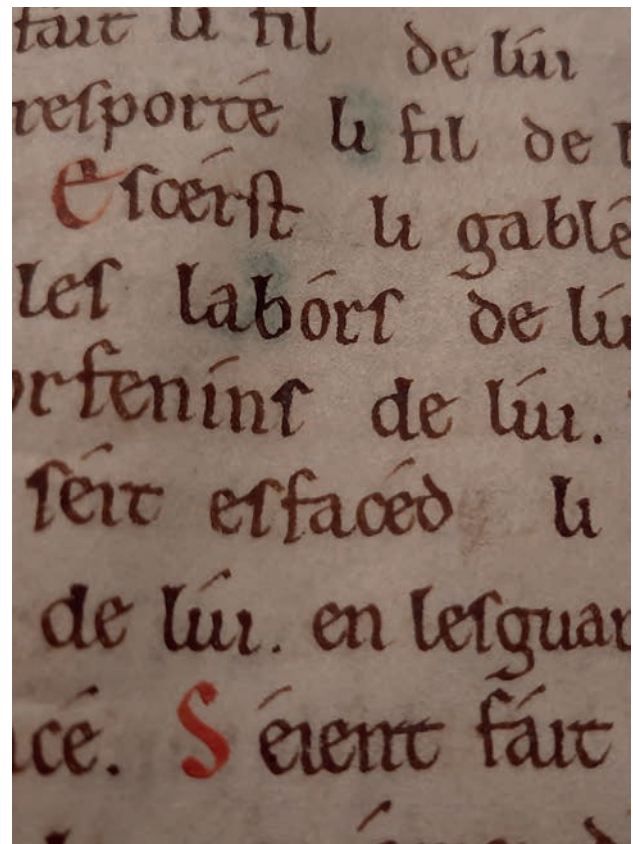 fait li fil de lúi
resporté li fil de
Escérst li gablé
les labórs de lúi
orfeníns de lúi.
séit esfacéd li
de lúi. en lesguar
cé. Séient fáit